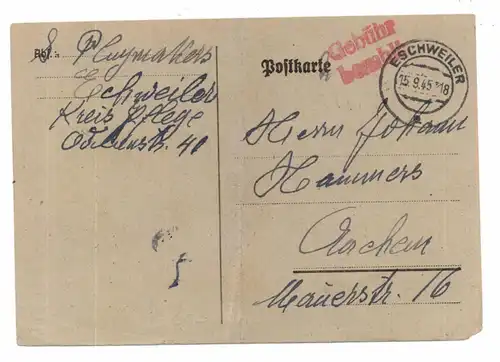 Abf.: Pluymakers
Eschweiler
Kreis Pflege
40
Postkarte
Gebühr
bezahlt
ESCHWEILER
15.9.45 18
Herrn Johann
Hammers
Aachen
Mauerstr. 16